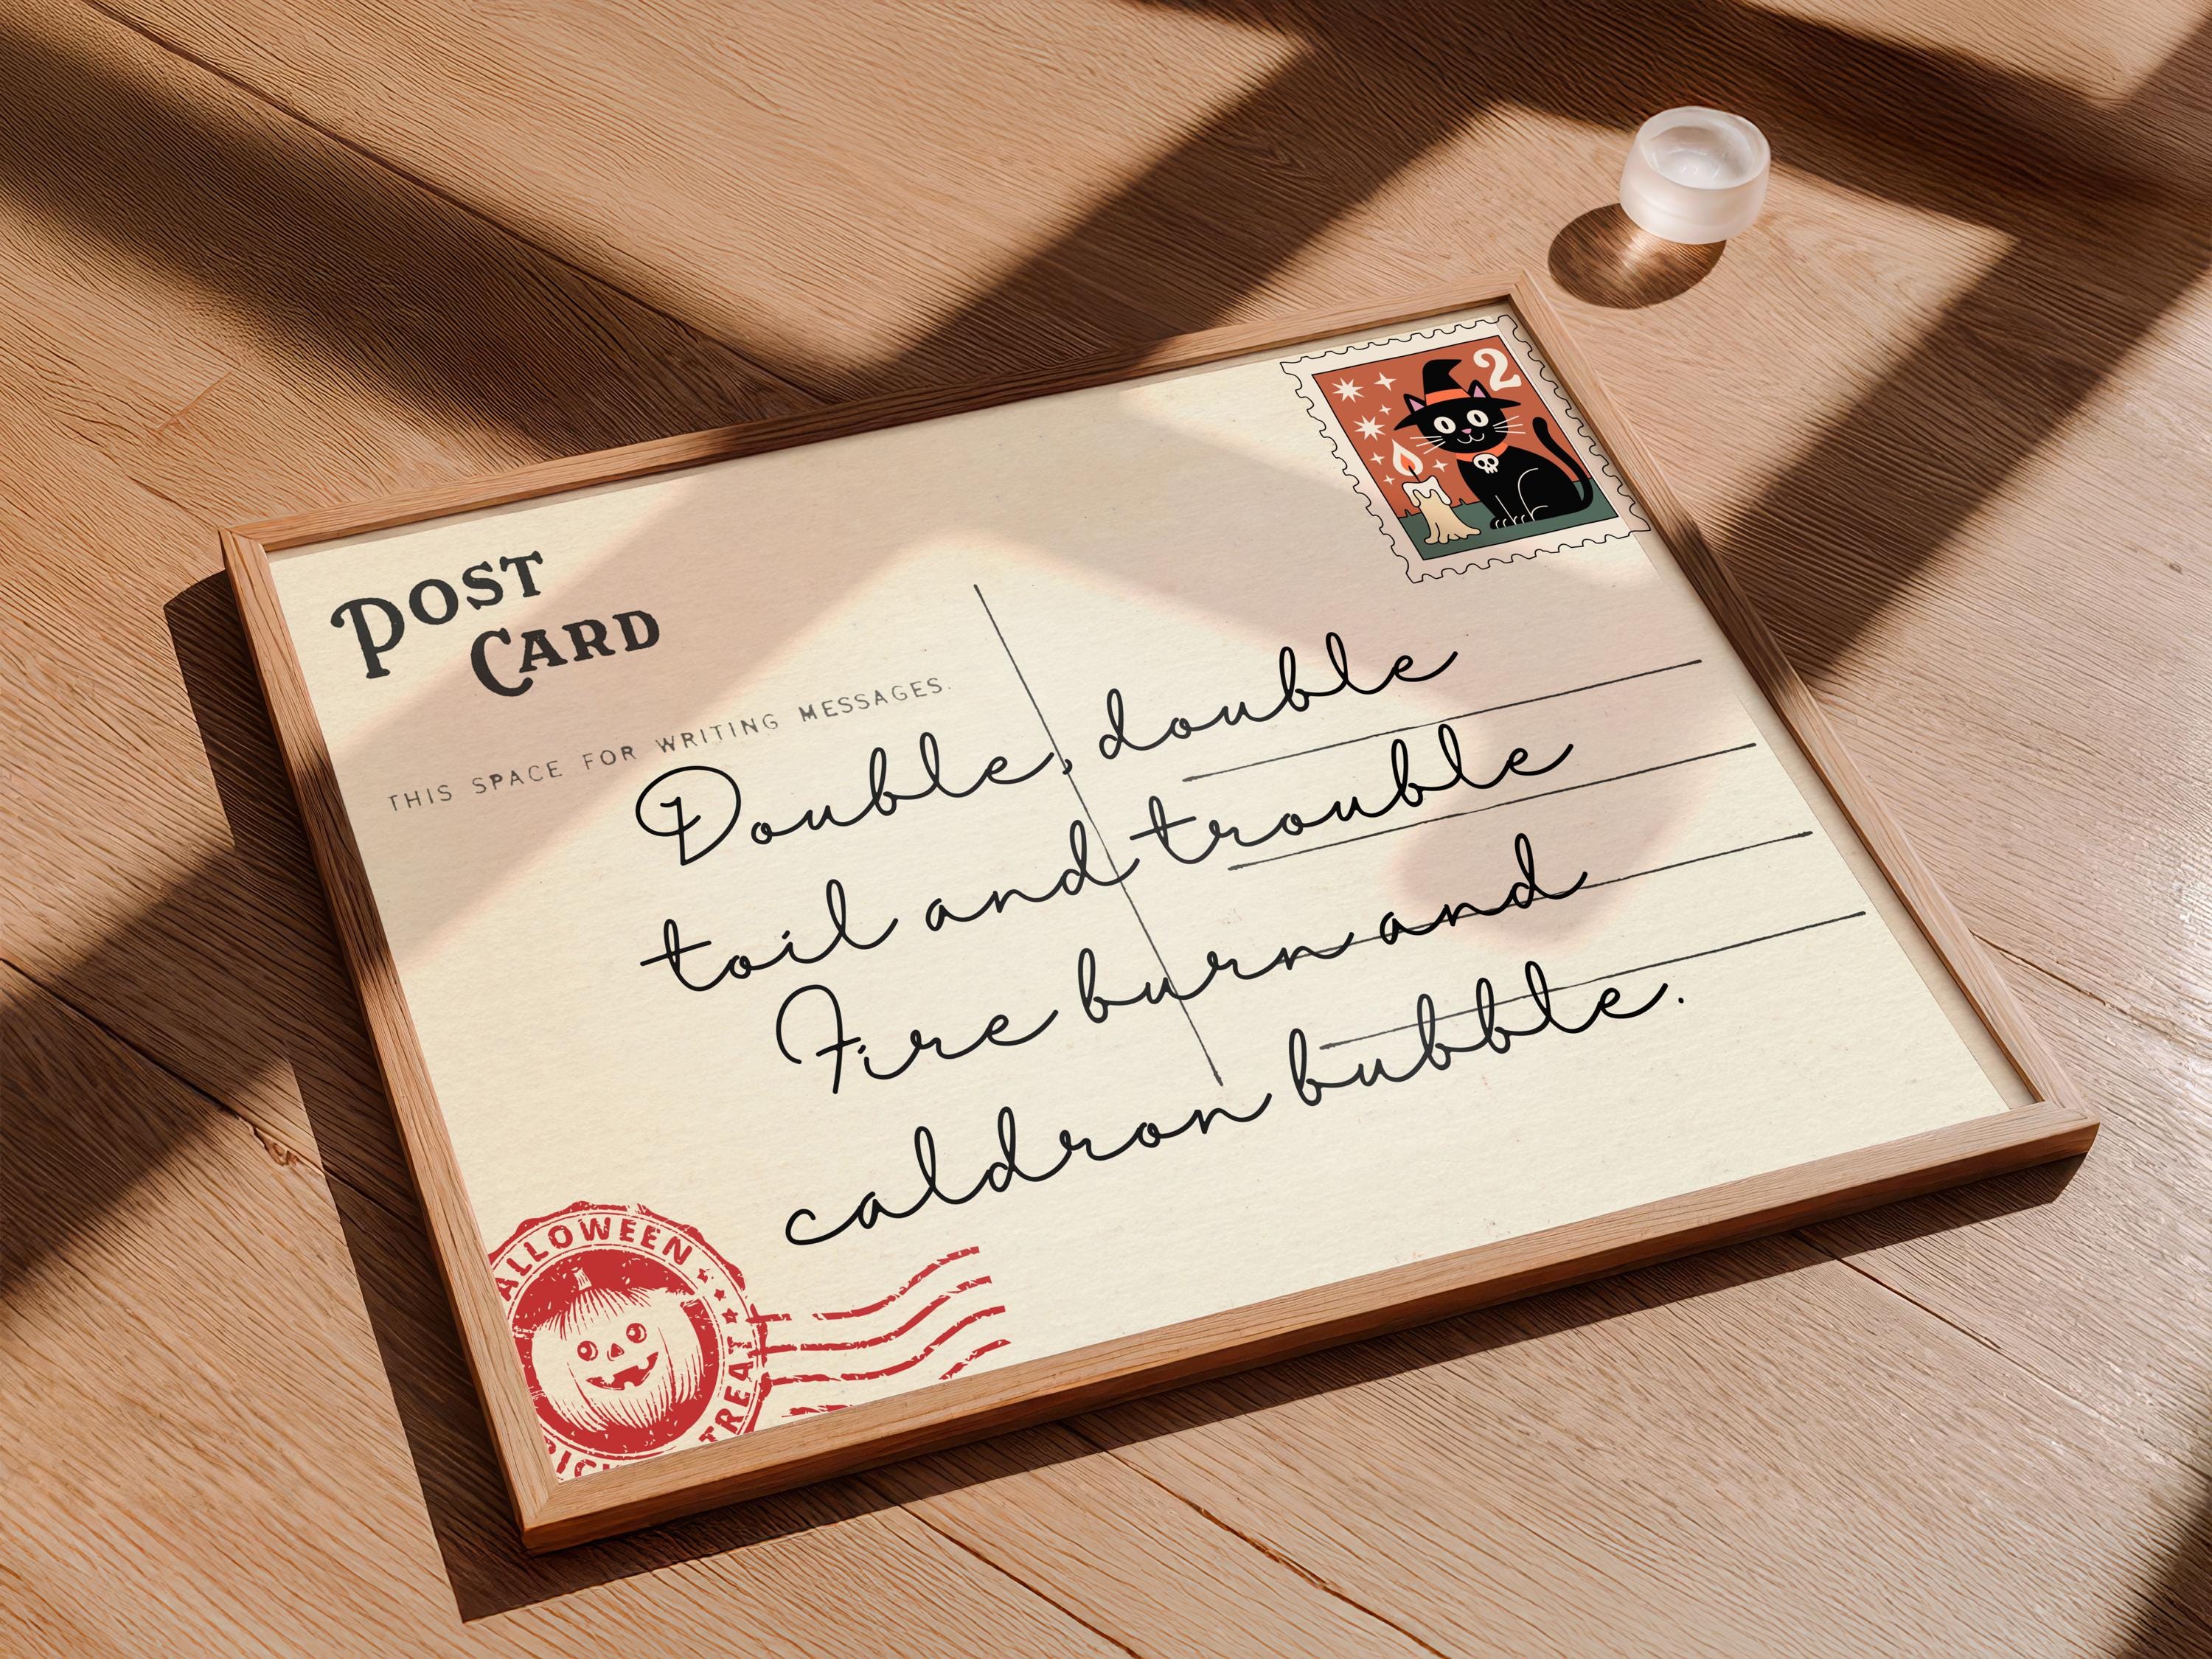 POST
CARD
2
THIS SPACE FOR WRITING MESSAGES.
Double, double
toil and trouble
Fire burn and
caldron bubble.
ALLOWEEN
TREAT